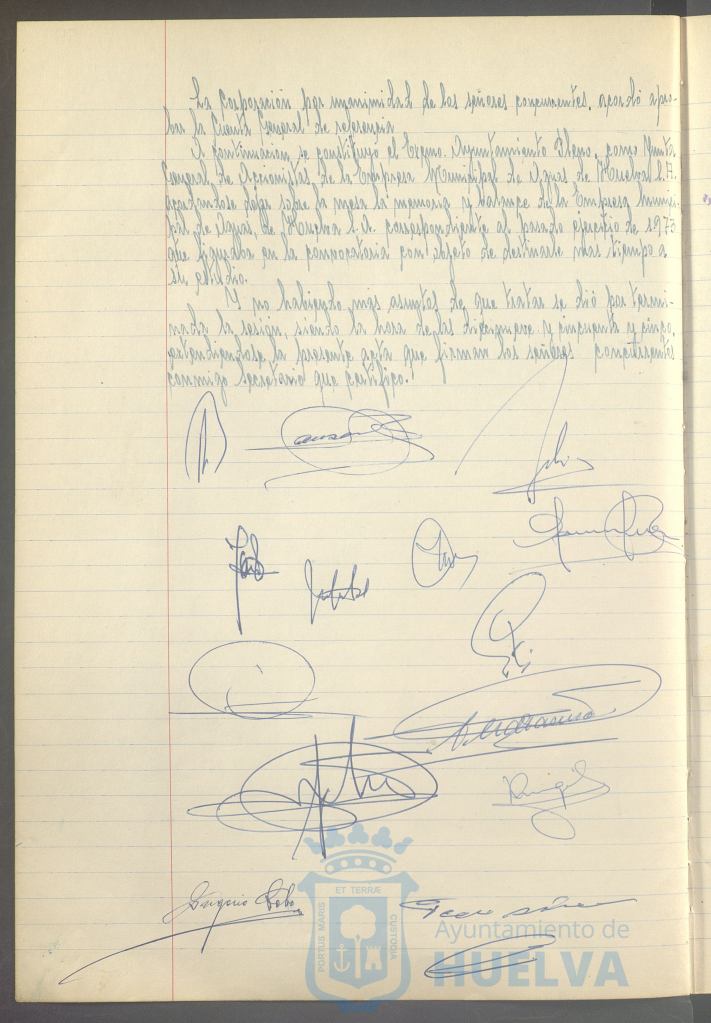 La Corporación por unanimidad de los señores concurrentes, acordó apro-
bar la Cuenta General de referencia
A continuación, se constituyó el Excmo. Ayuntamiento Pleno, como Junta
General de Accionistas de la Empresa Municipal de Aguas de Huelva S.A.
sobre la mesa la memoria y balance de la Empresa Munici-
pal de Aguas de Huelva S.A. correspondiente al pasado ejercicio de 1973
que figuraba en la convocatoria con objeto de destinarle mas tiempo a
su estudio.
Y no habiendo más asuntos de que tratar se dió por termi-
nada la sesión, siendo la hora de las diecinueve y cincuenta y cinco,
extendiéndose la presente acta que firman los señores concurrentes
conmigo Secretario que certifico.
ET TERRÆ
PORTUS MARIS
CUSTODIA
Ayuntamiento de
HUELVA